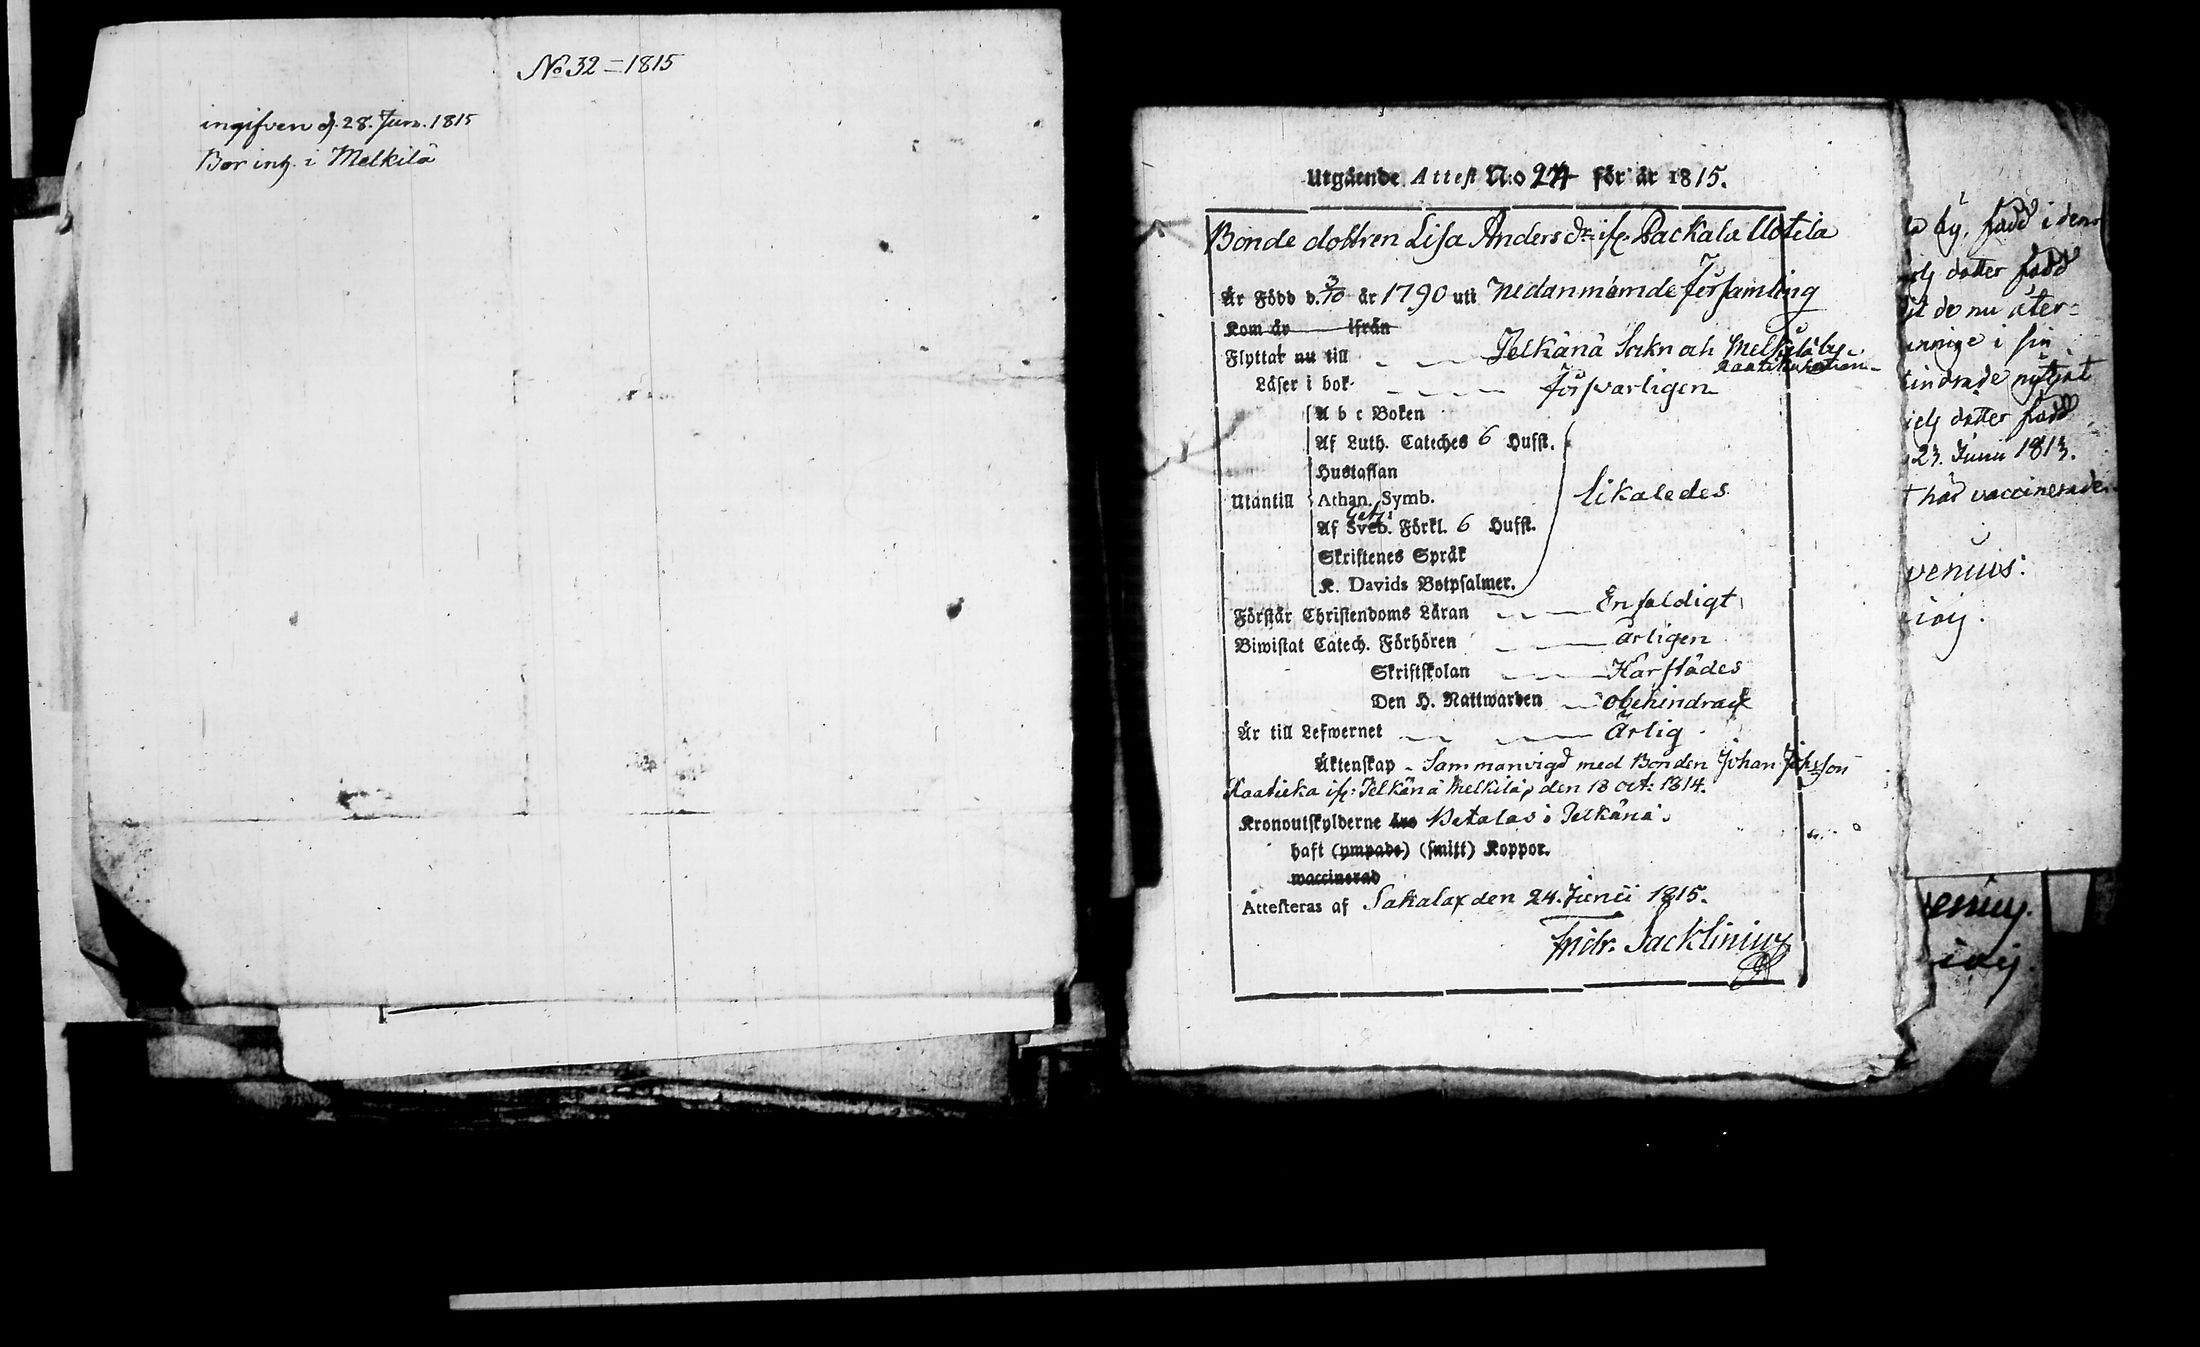 No 32 = 1815
ingifven d. 28. Jun. 1815
Bor inh. i Melkilä
Utgående Attest N:o 24 för år 1815.
Bonde dottren Lisa Anders Dr ifr. Packala Uotila
Är Född d. 3/10 år 1790 uti Nedannämde Församling
Kom år ifrån
Flyttar nu till Jelkänä Sokn och Melkilä by
Läser i bok Försvarligen
A b c Boken
Af Luth. Cateches 6 Hufst.
Hustaflan
Utantill Athan. Symb. likaledes
Af Sveb. Förkl. 6 Hufst.
Skriftenes Språk
K. Davids Botpsalmer.
Förstår Christendoms Läran Enfaldigt
Biwistat Catech. Förhören årligen
Skriftskolan Härstädes
Den H. Nattwarden obehindrad
Är till Lefwernet Ärlig
Äktenskap - Sammanvigd med Bonden Johan Johsson
Kaaticka ifr: Jelkänä Melkilä, den 18 oct: 1814.
Kronoutskylderne äro Betalas i Jelkänä.
haft (ympade) (smitt) Koppor.
waccinerad
Attesteras af Sakalax den 24. Junii 1815.
Fridr. Sacklinius
by, född i denn
dotter född
de nu åter=
i sin
dotter född
23. Junii 1813.
här vaccinerade